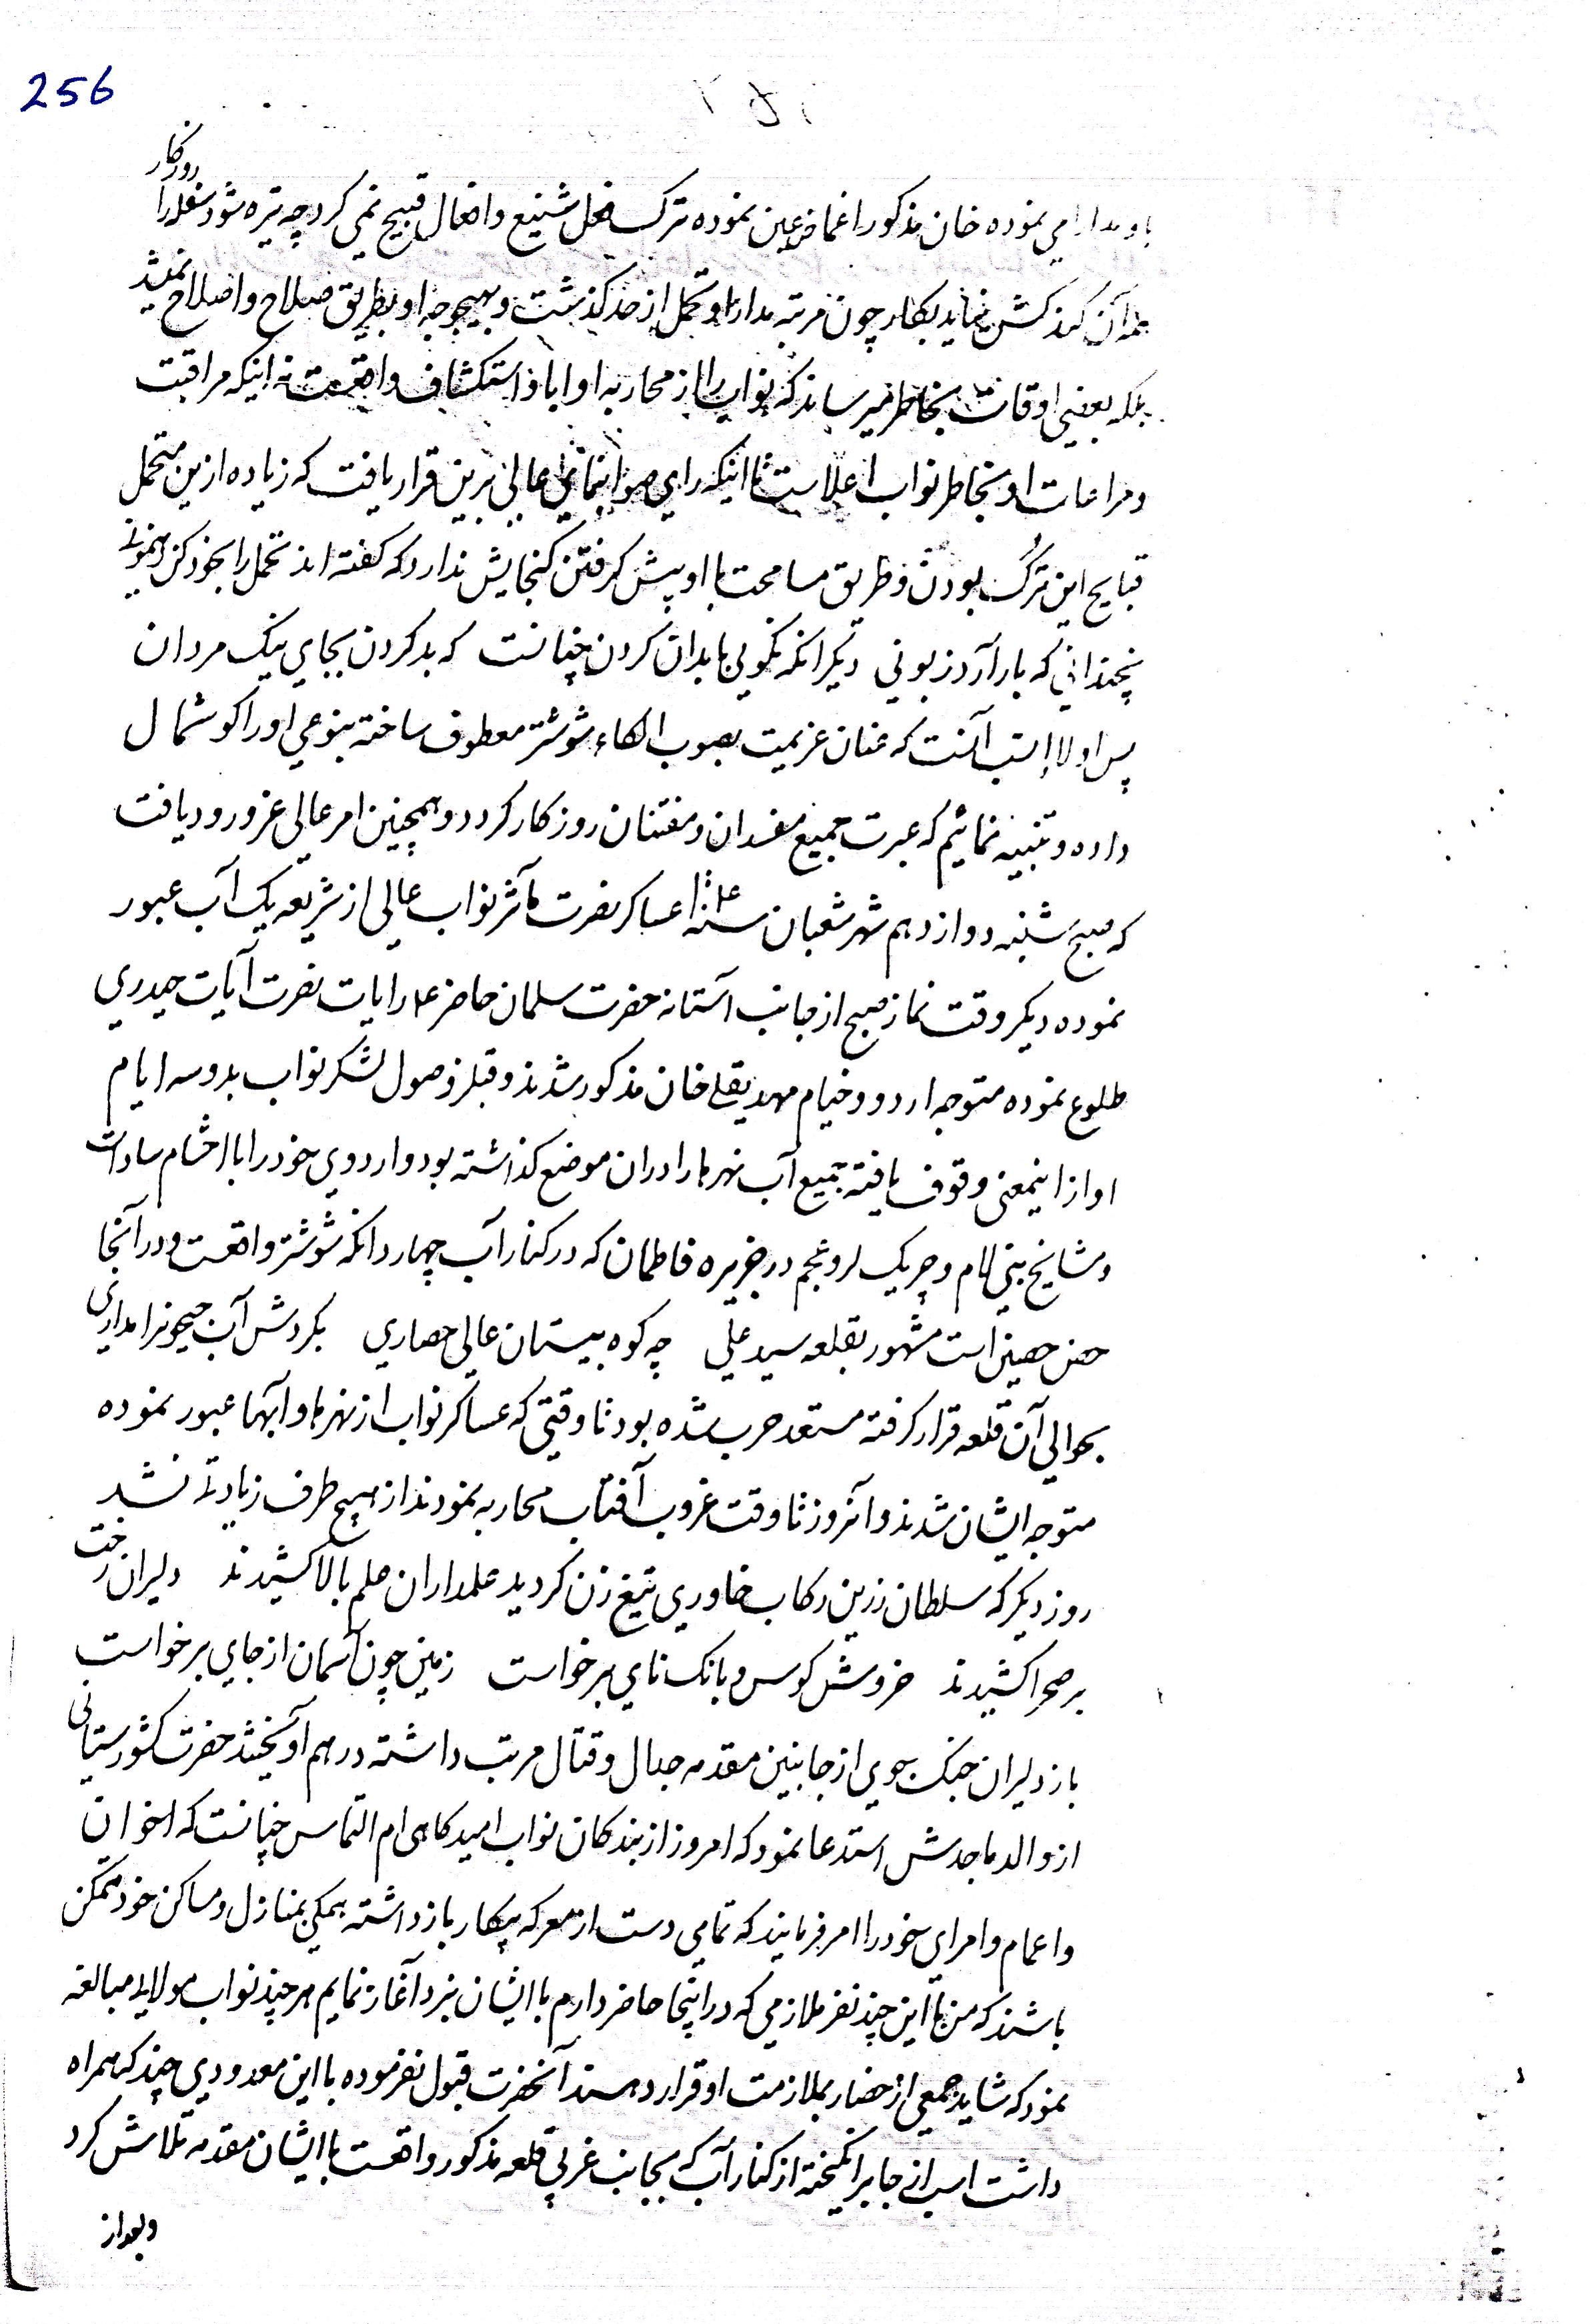 256
روزکار
با و مدارا می نموده خان مذکور اغماض عین نموده ترک فعل شنیع و افعال قبیح نمی کرد چه تیره شود سفله را
همه آن کند کش نیاید بکار چون مرتبه مدارا و تحمل از حد کذشت و بهیچوجه او بطریق صلاح و اصلاح نمیشد
بلکه بعضی اوقات بخاطر میرساند که نواب را از محاربه او ابا و استکشاف واقعست نه اینکه مراقبت
و مراعات او بخاطر نواب اعلاست تا اینکه رای صوابنمای عالی برین قرار یافت که زیاده ازین متحمل
قبایح این ترک بودن و طریق مسامحت با او پیش کرفتن کنجایش ندارد که کفته اند تحمل را بخود کن رهنمونی
نچندانی که بار آرد زبونی دیکر انکه نکویی با بدان کردن چنانست که بد کردن بجای نیک مردان
پس اولا انسب آنست که عنان عزیمت بصوب الکاء شوشتر معطوف ساخته بنوعی او را کوشمال
داده و تنبیه نمائیم که عبرت جمیع مفسدان و مفتنان روزکار کردد و همچنین امر عالی عز ورود یافت
که صبح شنبه دوازدهم شهر شعبان سنه عساکر نصرت مآثر نواب عالی از شریعه یک آب عبور
نموده دیکر وقت نماز صبح از جانب آستانه حضرت سلمان حاضر علم رایات نصرت آیات حیدری
طلوع نموده متوجه اردو و خیام مهدیقلی خان مذکور شدند و قبل از وصول لشکر نواب بدو سه ایام
او از اینمعنی وقوف یافته جمیع آب نهرها را دران موضع کذاشته بود و اردوی خود را با احشام سادات
و مشایخ بنی لام و چریک لر و عجم در جزیره فاطمان که در کنار آب چهار دانکه شوشتر واقعست و در آنجا
حصن حصین است مشهور بقلعه سید علی چه کوه بیستمان عالی حصاری بکردش آب جیحونرا مداری
بحوالی آن قلعه قرار کرفته مستعد حرب شده بود تا وقتی که عساکر نواب از نهرها و آبها عبور نموده
متوجه ایشان شدند و آنروز تا وقت غروب آفتاب محاربه نمودند از هیچ طرف زیادتی نشد
روز دیکر که سلطان زرین رکاب خاوری تیغ زن کردید علمداران علم بالا کشیدند دلیران رخت
بر صحرا کشیدند خروش کوس و بانک نای برخواست زمین چون آسمان از جای برخواست
باز دلیران جنک جوی از جانبین مقدمه جدال و قتال مرتب داشته در هم آویختند حضرت کشورستانی
از والد ماجدش استدعا نمود که امروز از بندکان نواب امیدکاهی ام التماس چنانست که اخوان
و اعمام و امرای خود را امر فرمایند که تمامی دست از معرکه پیکار باز داشته همکی بمنازل و مساکن خود متمکن
باشند که من با این چند نفر ملازمی که در اینجا حاضر دارم با ایشان نبرد آغاز نمایم هر چند نواب مولایی مبالغه
نمود که شاید جمعی از حضار بملازمت او قرار دهند آنحضرت قبول نفرموده با این معدودی چند که همراه
داشت اسب از جا برانکیخته از کنار آب که بجانب غربی قلعه مذکور واقعست با ایشان مقدمه تلاش کرد
و بعد از